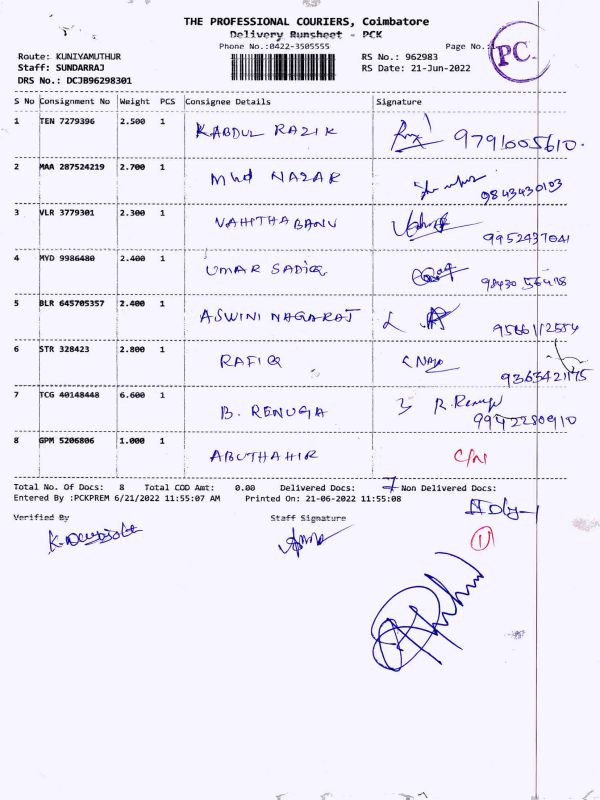 THE PROFESSIONAL COURIERS, Coimbatore
Delivery Runsheet - PCK
Phone No.:0422-3505555
Page No.:1
PC.
Route: KUNIYAMUTHUR
RS No.: 962983
Staff: SUNDARRAJ
RS Date: 21-Jun-2022
DRS No.: DCJB96298301
S No Consignment No Weight PCS Consignee Details Signature
1 TEN 7279396 2.500 1 K ABDUL RAZIK 9791005610.
2 MAA 287524219 2.700 1 Mhd NAZAR 9843430103
3 VLR 3779301 2.300 1 VAHITHA BANU 9952437041
4 MYD 9986480 2.400 1 UMAR SADIQ 98430 56418
5 BLR 645705357 2.400 1 ASWINI NAGARAJ 9566112554
6 STR 328423 2.800 1 RAFIQ 9363421175
7 TCG 40148448 6.600 1 B. RENUGA R. Renuga 9942280910
8 GPM 5206806 1.000 1 ABUTHAHIR C/N
Total No. Of Docs: 8 Total COD Amt: 0.00 Delivered Docs: 7 Non Delivered Docs:
Entered By :PCKPREM 6/21/2022 11:55:07 AM Printed On: 21-06-2022 11:55:08
Verified By Staff Signature
1